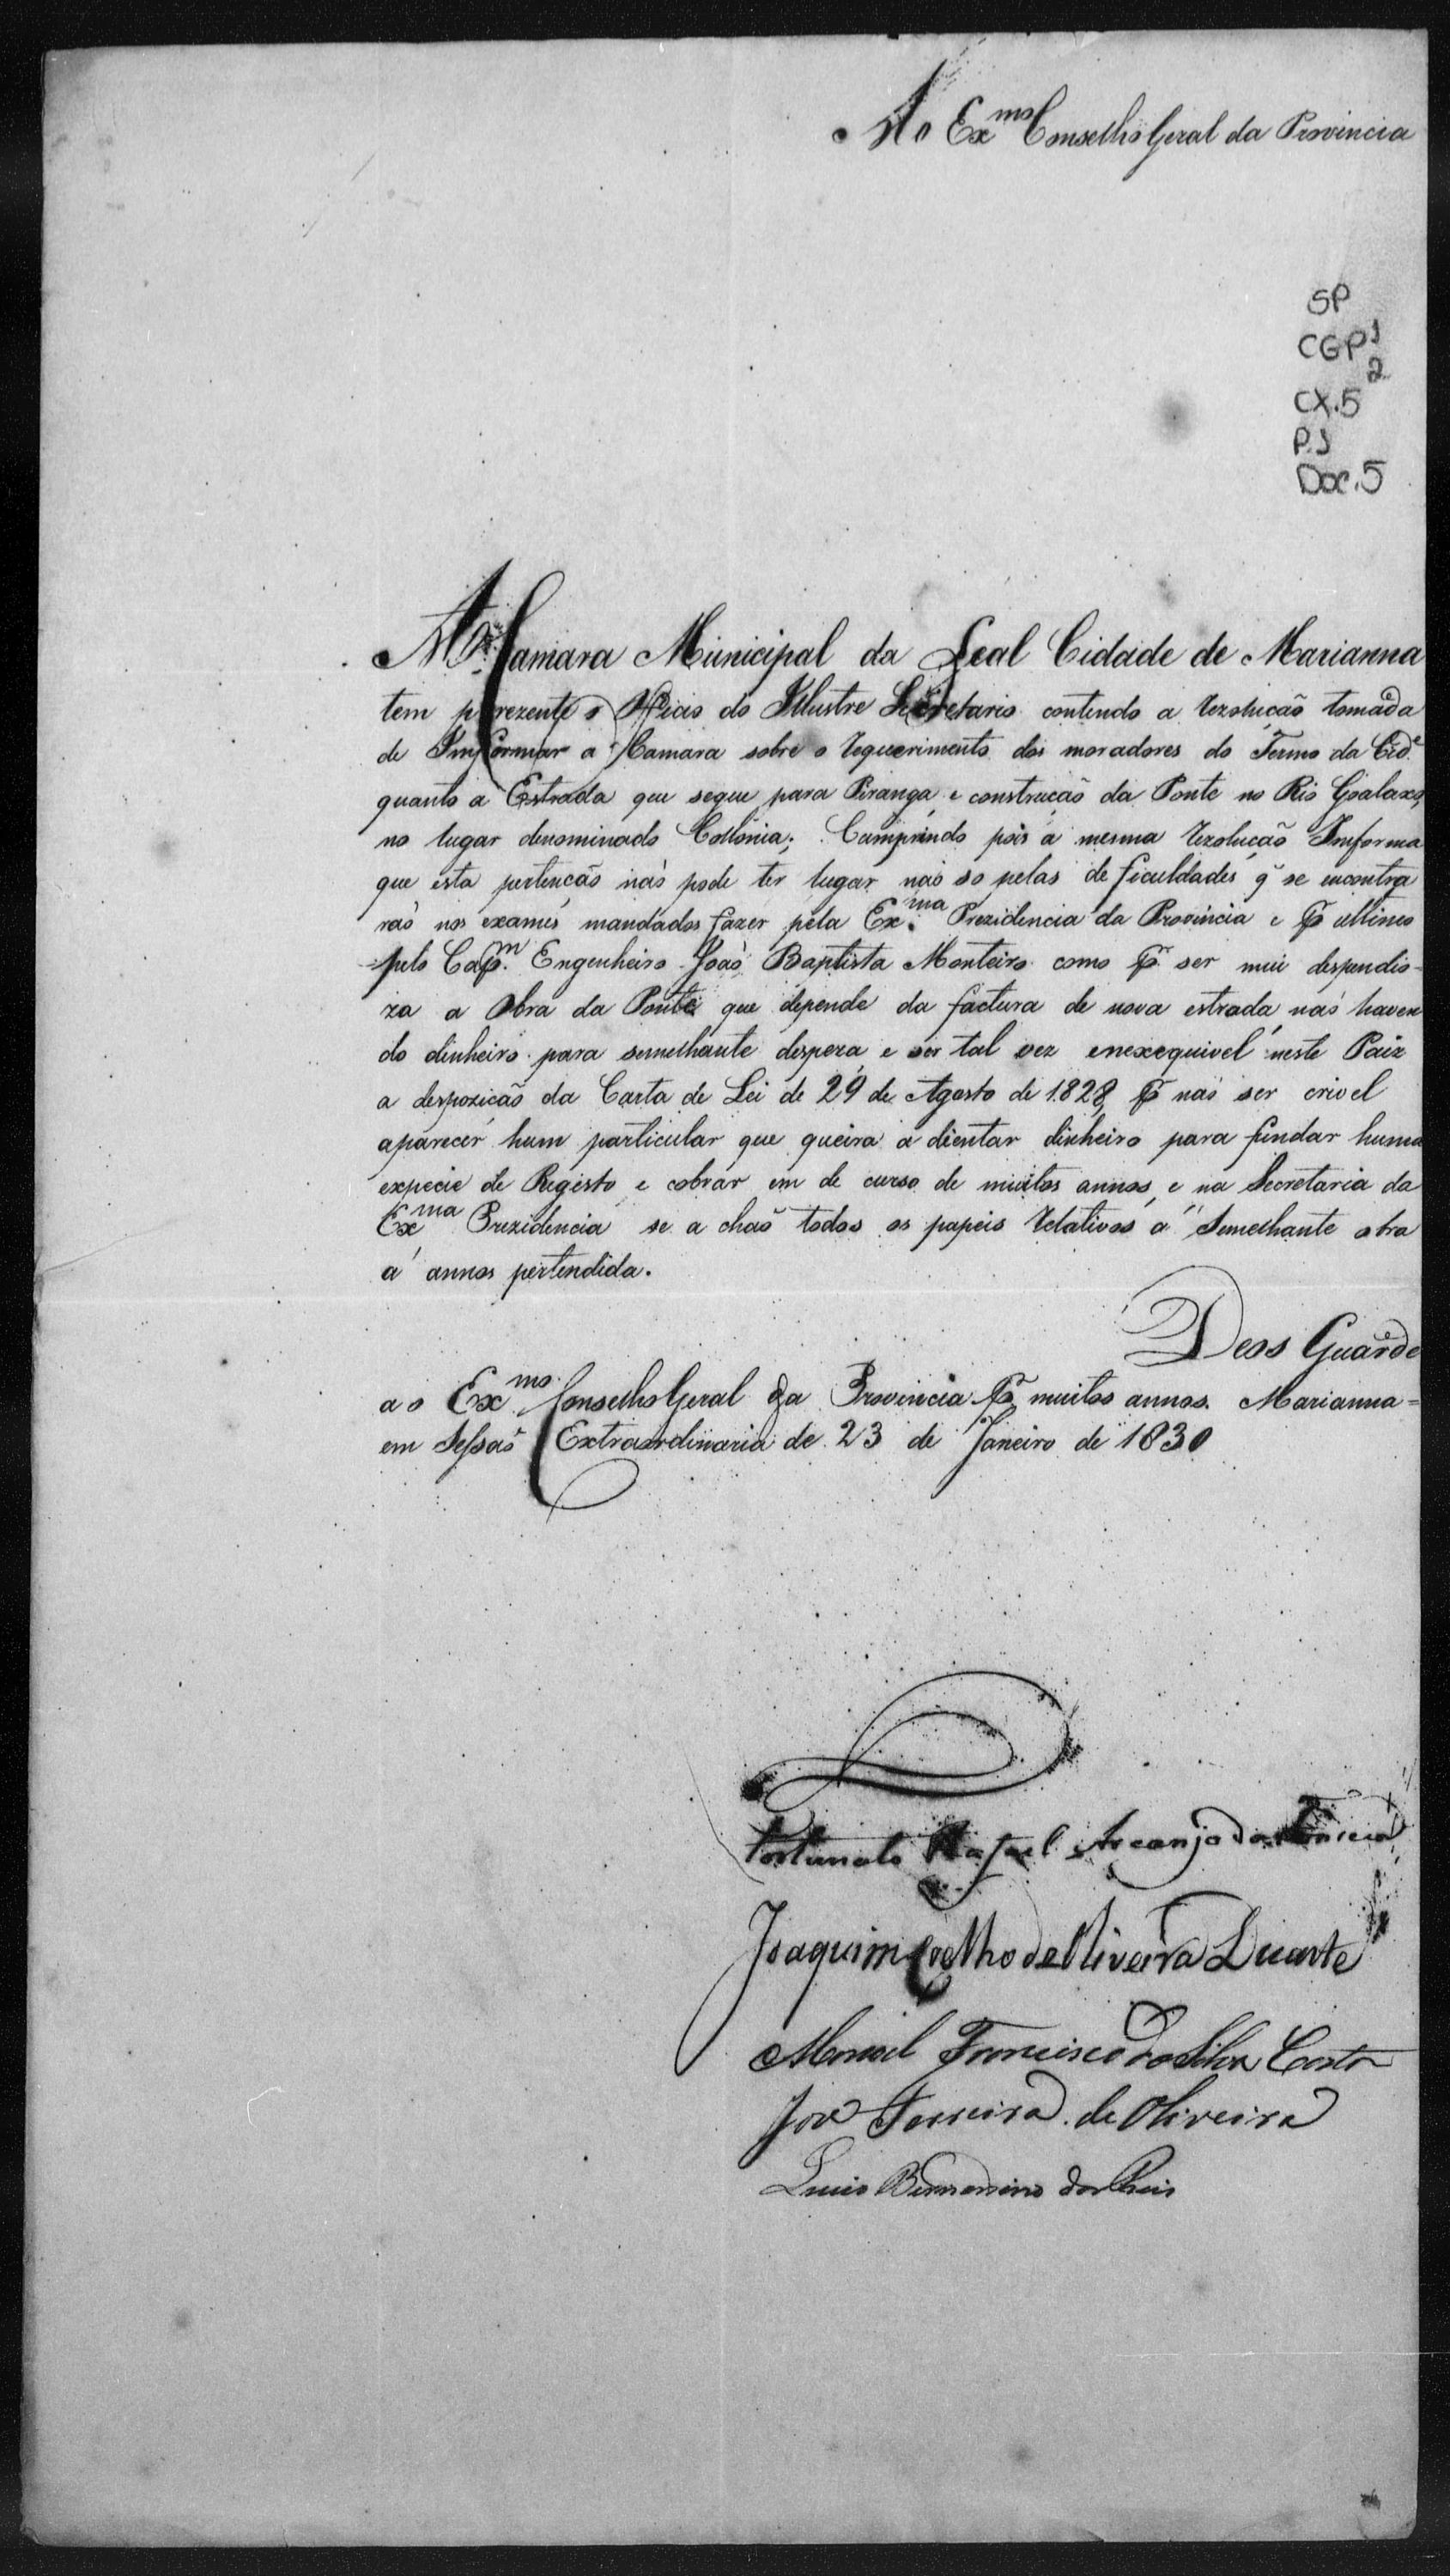 Ao Ex.mo Conselho Geral da Provincia
SP
CGP1
2
CX.5
P.1
Doc.5
A Camara Municipal da Leal Cidade de Marianna
tem prezente o Officio do Illustre Secretario contendo a rezolução tomada
de Imformar a Camara sobre o requerimento dos moradores do Termo da Cid.e
quanto a Estrada que segue para Piranga, e construcão da Ponte no Rio Goalaxo,
no lugar denominado Collonia; Cumprindo pois a mesma rezolucão Imforma
que esta pertencão não pode ter lugar não so pelas deficuldades q̃ se encontra
rão nos exames mandados fazer pela Ex.ma Prezidencia da Provincia e p̃ ultimo
pelo Cap.m Engenheiro João Baptista Monteiro como p̃ ser mui despendio-
za a Obra da Ponte que depende da factura de nova estrada não haven
do dinheiro para semelhante despeza e ser tal vez enexequivel neste Paiz
a despozicão da Carta de Lei de 29 de Agosto de 1828, p̃ não ser crivel
aparecer hum particular que queira a dientar dinheiro para fundar huma
expecie de Registo e cobrar em de curso de muitos annos, e na Secretaria da
Ex.ma Prezidencia se a chão todos os papeis relativos a semelhante obra
á annos pertendida.
Deos Guarde
ao Ex.mo Conselho Geral da Provincia p̃ muitos annos. Marianna =
em Sessão Extraordinaria de 23 de Janeiro de 1830
Fortunato Rafael Arcanjo da Fonseca
Joaquim Coelho de Oliveira Duarte
Manoel Francisco da Silva Costa
Joze Ferreira de Oliveira
Luis Bernardino dos Reis